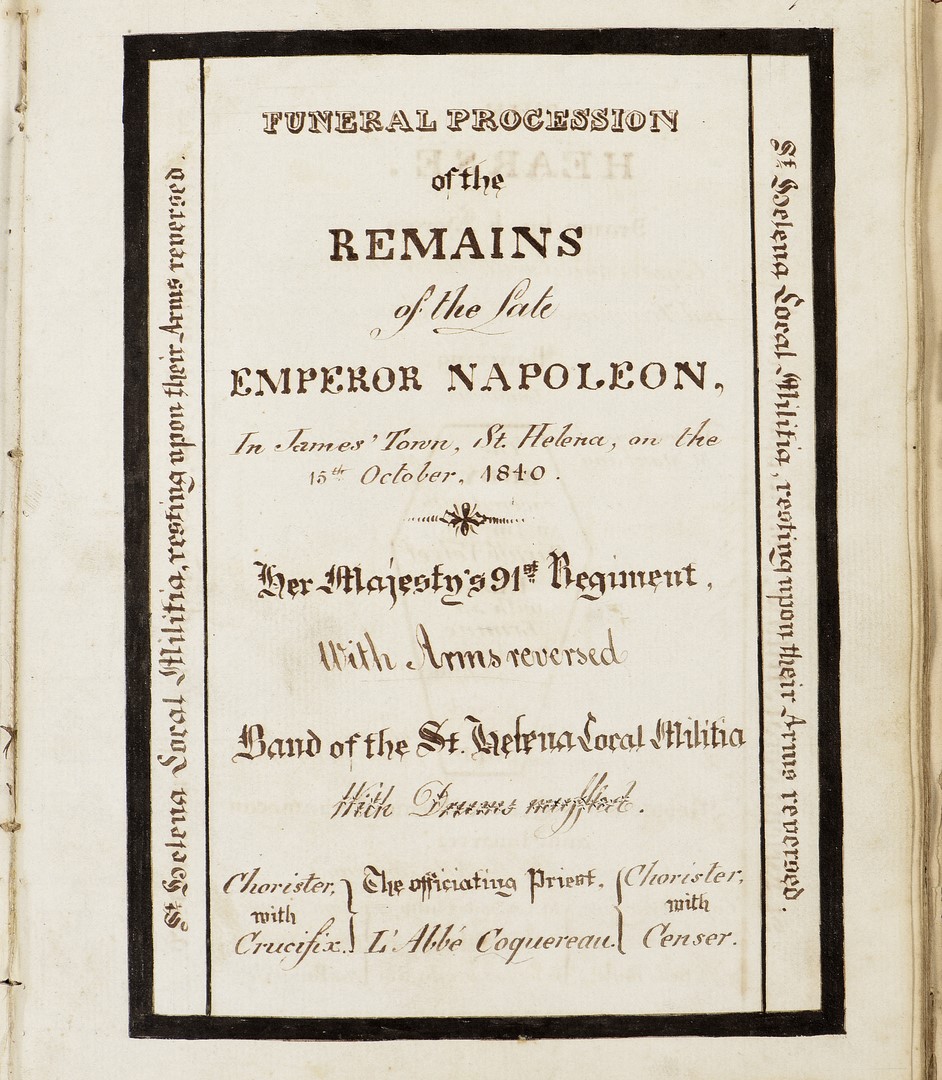 FUNERAL PROCESSION
of the
REMAINS
of the Late
EMPEROR NAPOLEON,
In James' Town, St. Helena, on the
15th October, 1840.
Her Majesty's 91st Regiment,
With Arms reversed
Band of the St. Helena Local Militia
With Drums muffled.
Chorister, with Crucifix. } The officiating Priest, L'Abbé Coquereau. { Chorister, with Censer.
St. Helena Local Militia, resting upon their Arms reversed.
St. Helena Local Militia, resting upon their Arms reversed.